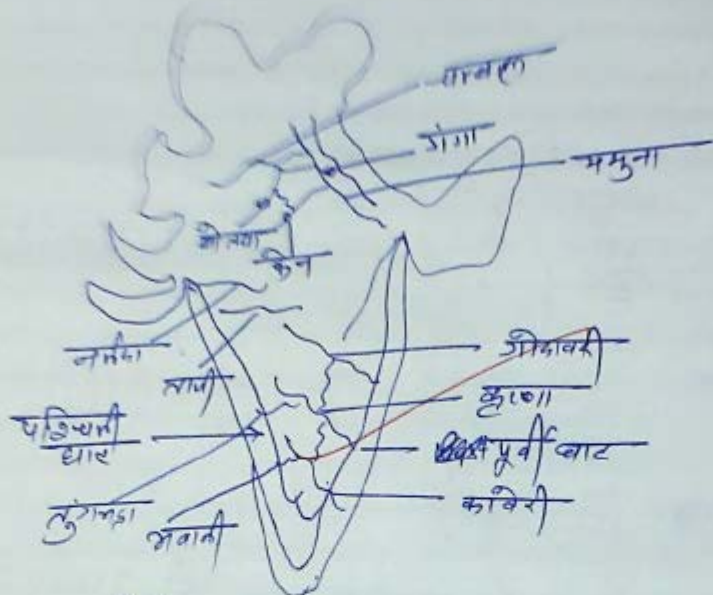 चम्बल
गंगा
यमुना
बेतवा
केन
नर्मदा
ताप्ती
गोदावरी
कृष्णा
पश्चिमी
घाट
पूर्वी घाट
कावेरी
तुंगभद्रा
भवानी